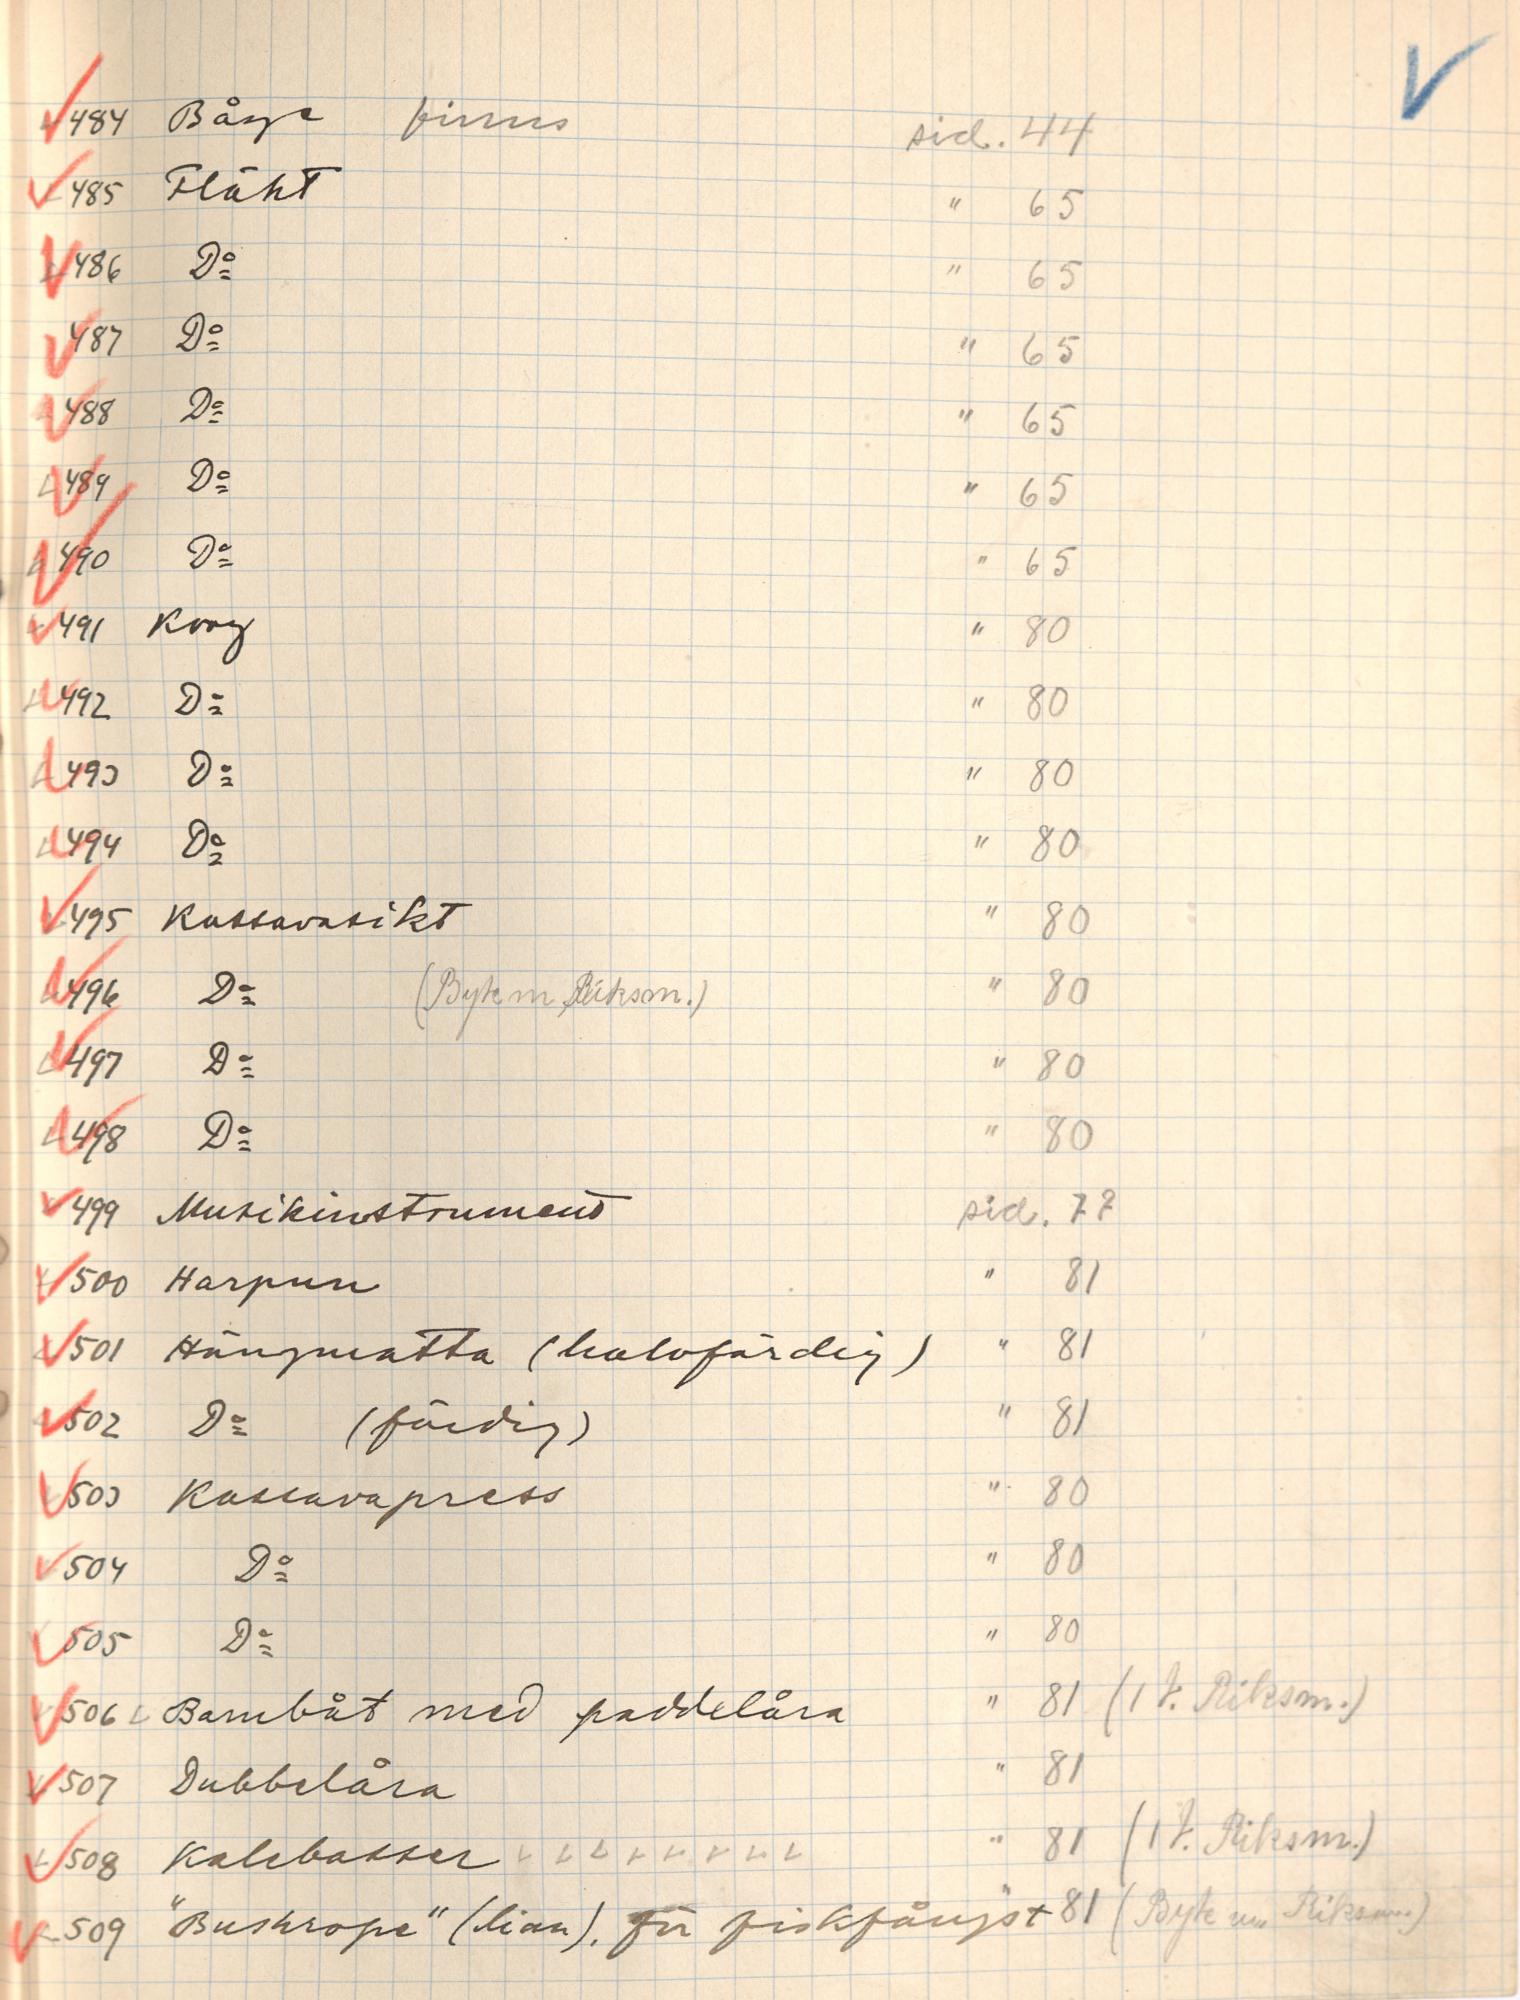 484 Båge finns sid. 44
485 Fläkt " 65
486 Do " 65
487 Do " 65
488 Do " 65
489 Do " 65
490 Do " 65
491 Korg " 80
492 Do " 80
493 Do " 80
494 Do " 80
495 Kassavasikt " 80
496 Do (Byte m Riksm.) " 80
497 Do " 80
498 Do " 80
499 Musikinstrument sid. 77
500 Harpun " 81
501 Hängmatta (halvfärdig) " 81
502 Do (färdig) " 81
503 Kassavapress " 80
504 Do " 80
505 Do " 80
506 Barnbåt med paddelåra " 81 (1 t. Riksm.)
507 Dubbelåra " 81
508 Kalebasser " 81 (1 t. Riksm.)
509 "Bushrope" (lian), för fiskfångst " 81 (Byte m. Riksm.)